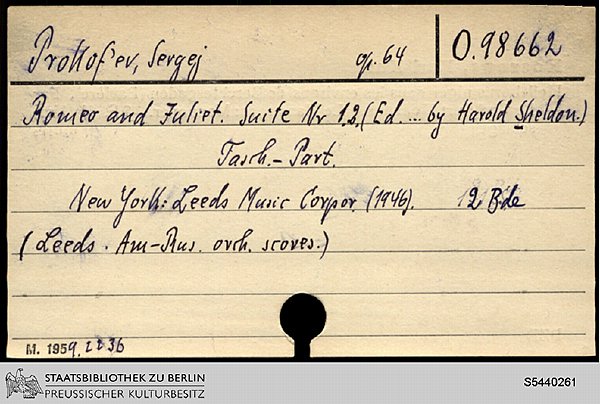 Prokof'ev, Sergej op. 64 O.98662
Romeo and Juliet. Suite Nr 1.2. (Ed. ... by Harold Sheldon.)
Tasch.-Part.
New York: Leeds Music Corpor. (1946). 2 Bde
(Leeds. Am-Rus. orch. scores.)
M. 1959. 2236
STAATSBIBLIOTHEK ZU BERLIN
PREUSSISCHER KULTURBESITZ
S5440261